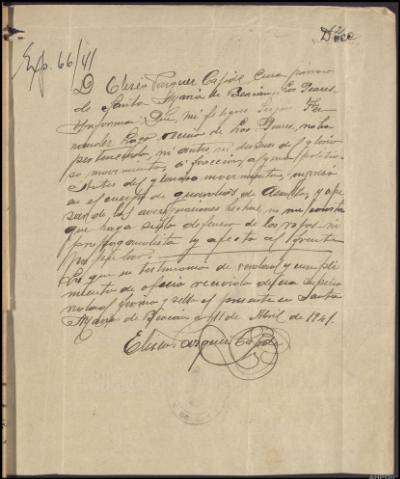 Doce
Exp. 66/41
D. Eliseo Vazquez Cessde Cura párroco
de Santa María de Beacán, Los Peares,
Informa: Que, mi feligres Sergio Fer-
nandez, vecino de Los Peares, no ha
pertenecido, ni antes ni despues del glorio
so movimiento, a fraccion alguna politica.
Antes del glorioso movimiento, ingresó
en el cuerpo de guardias de Asalto, y a pe
sar de las averiguaciones hechas, no me consta
que haya sido defensor de los rojos ni
propagandista ni afecto al frente
popular.
Lo que en testimonio de verdad y cumpli
miento de oficio recibido de su
firmo y sello el presente en Santa
María de Beacán a 11 de Abril de 1941.
Eliseo Vazquez